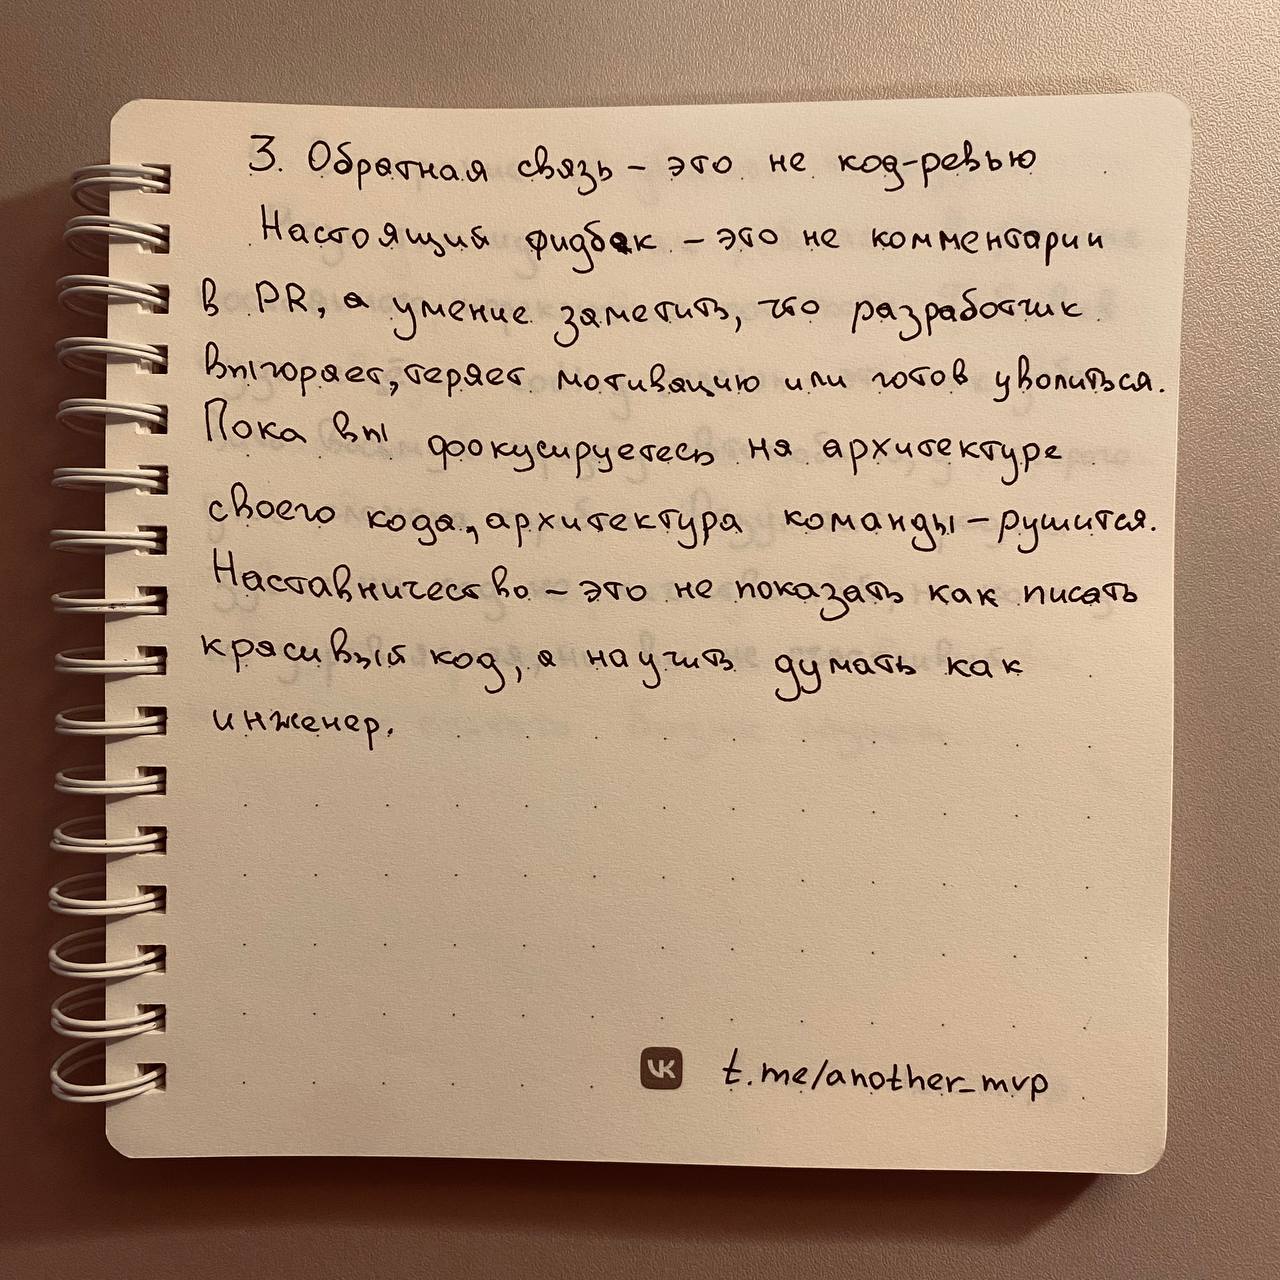 3. Обратная связь – это не код-ревью
Настоящий фидбек – это не комментарии
в PR, а умение заметить, что разработчик
выгорает, теряет мотивацию или готов уволиться.
Пока вы фокусируетесь на архитектуре
своего кода, архитектура команды – рушится.
Наставничество – это не показать как писать
красивый код, а научить думать как
инженер.
VK t.me/another_mvp